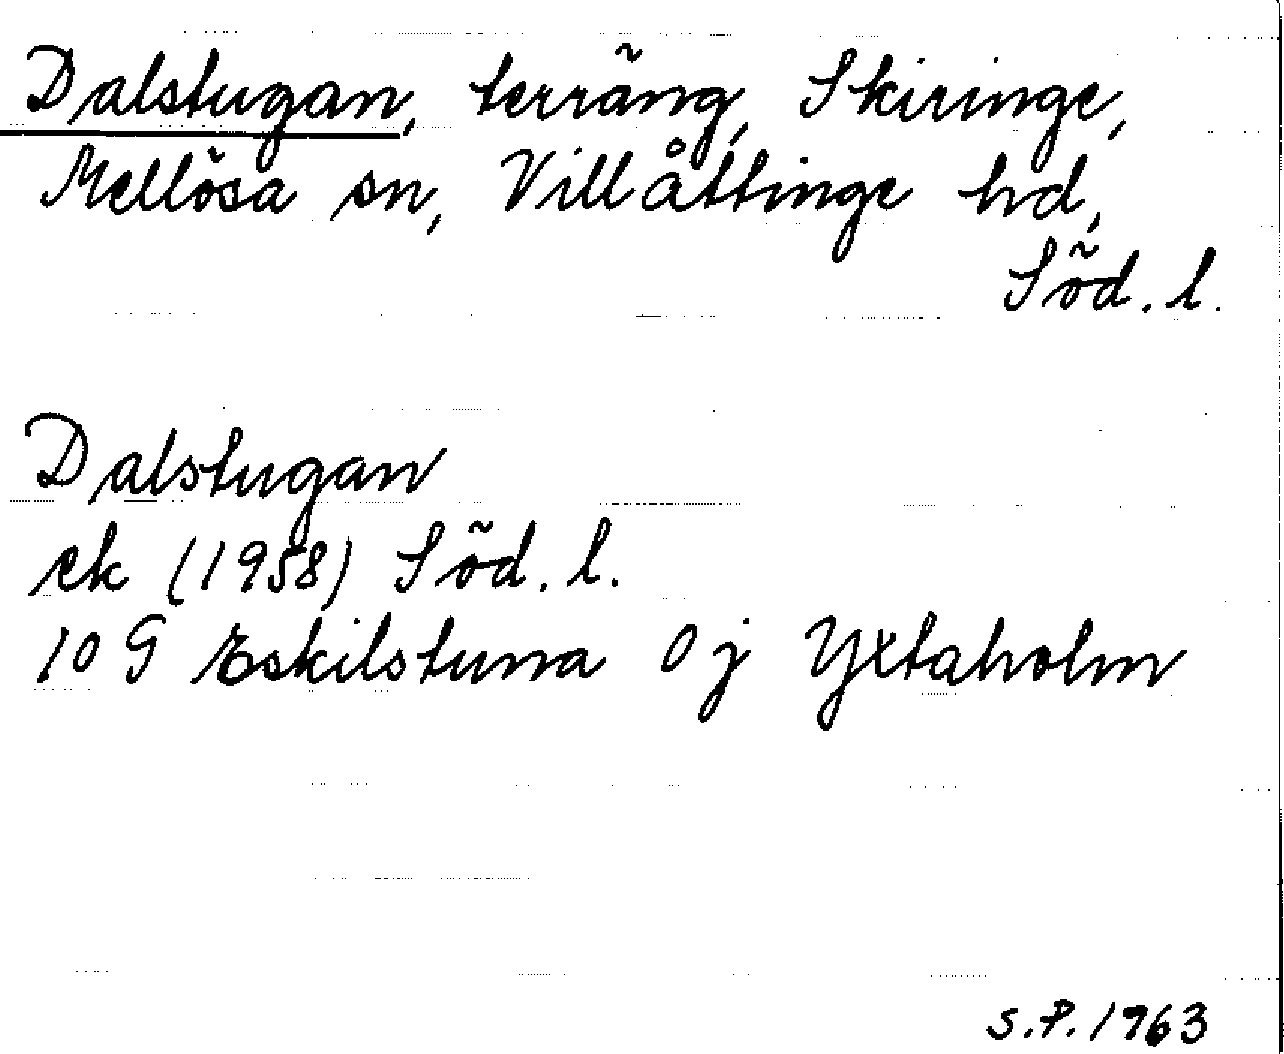 Dalstugan, terräng, Skiringe,
Mellösa sn, Villåttinge hd,
Söd. l.
Dalstugan
ek (1958) Söd. l.
10 G Eskilstuna 0 j Yxtaholm
S.P. 1963